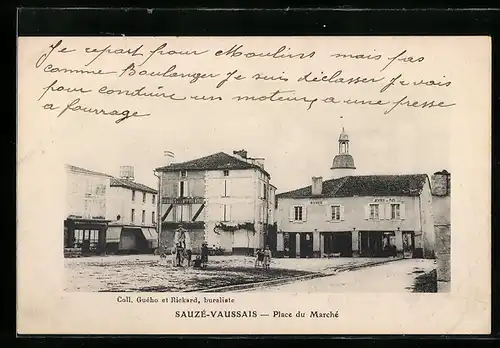 Je repart pour Moulins mais pas
comme Boulanger Je suis déclassé Je vais
pour conduire un moteur, a une presse
a fourrage
Coll. Guého et Rickard, buraliste
SAUZÉ-VAUSSAIS — Place du Marché